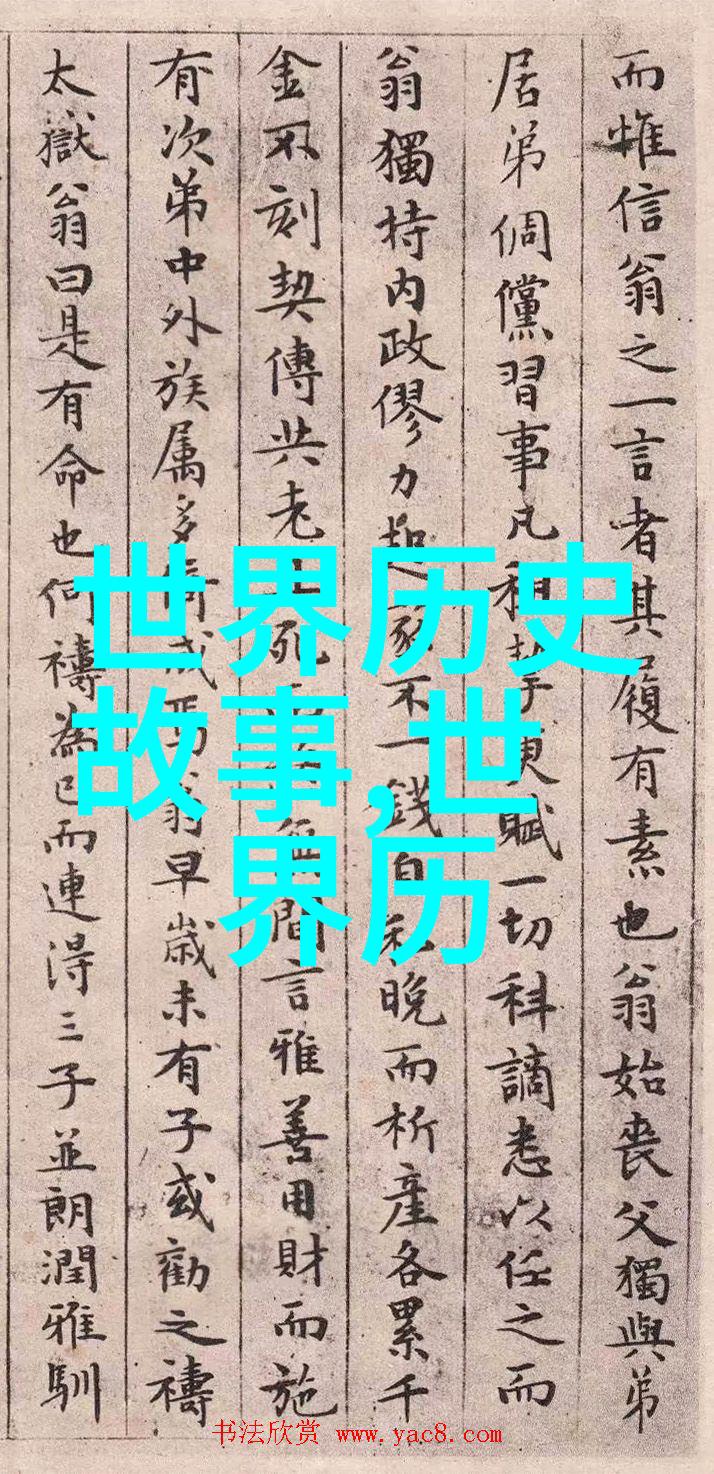 而惟信翁之一言者其履有素也翁始喪父獨與弟
居弟倜儻習事凡租挈更賦一切科謫悉以任之而
翁獨持内政僇力起家不一錢自私晚而析產各累千
金不刻契傳共老上死間言雅善用財而施
有次弟中外族属多焉翁早歲未有子或勸之禱
太嶽翁曰是有命也何禱為已而連得三子並朗潤雅馴
世界历史
故事,世
界历
书法欣赏 www.yac8.com